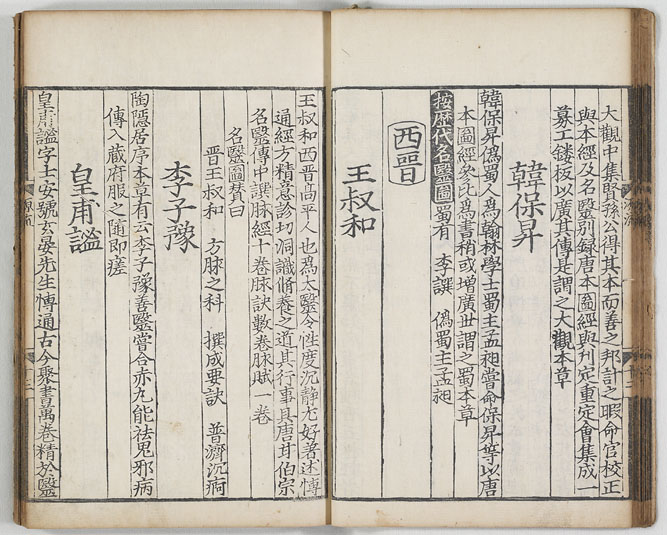 大觀中集賢孫公得其本而善之邦計之暇命官校正
與本經及名醫別録唐本圖經與刋定重定會集成一
募工鏤板以廣其傳是謂之大觀本草
韓保昇
韓保昇僞蜀人爲翰林學士蜀主孟昶嘗命保昇等以唐
本圖經參比爲書稍或增廣世謂之蜀本草
按歷代名醫圖蜀有 李譔 僞蜀主孟昶
西晉
王叔和
王叔和西晉高平人也爲太醫令性度沉静尤好著述慱
通經方精意診切洞識脩養之道其行事具唐甘伯宗
名醫傳中譔脉經十卷脉訣數卷脉賦一卷
名醫圖賛曰
晋王叔和 方脉之科 撰成要訣 普濟沉痾
李子豫
陶隱居序本草有云李子豫善醫嘗合赤丸能祛鬼邪病
傳入蔵府服之随即瘥
皇甫謐
皇甫謐字士安號玄晏先生慱通古今聚書萬卷精於醫
源流